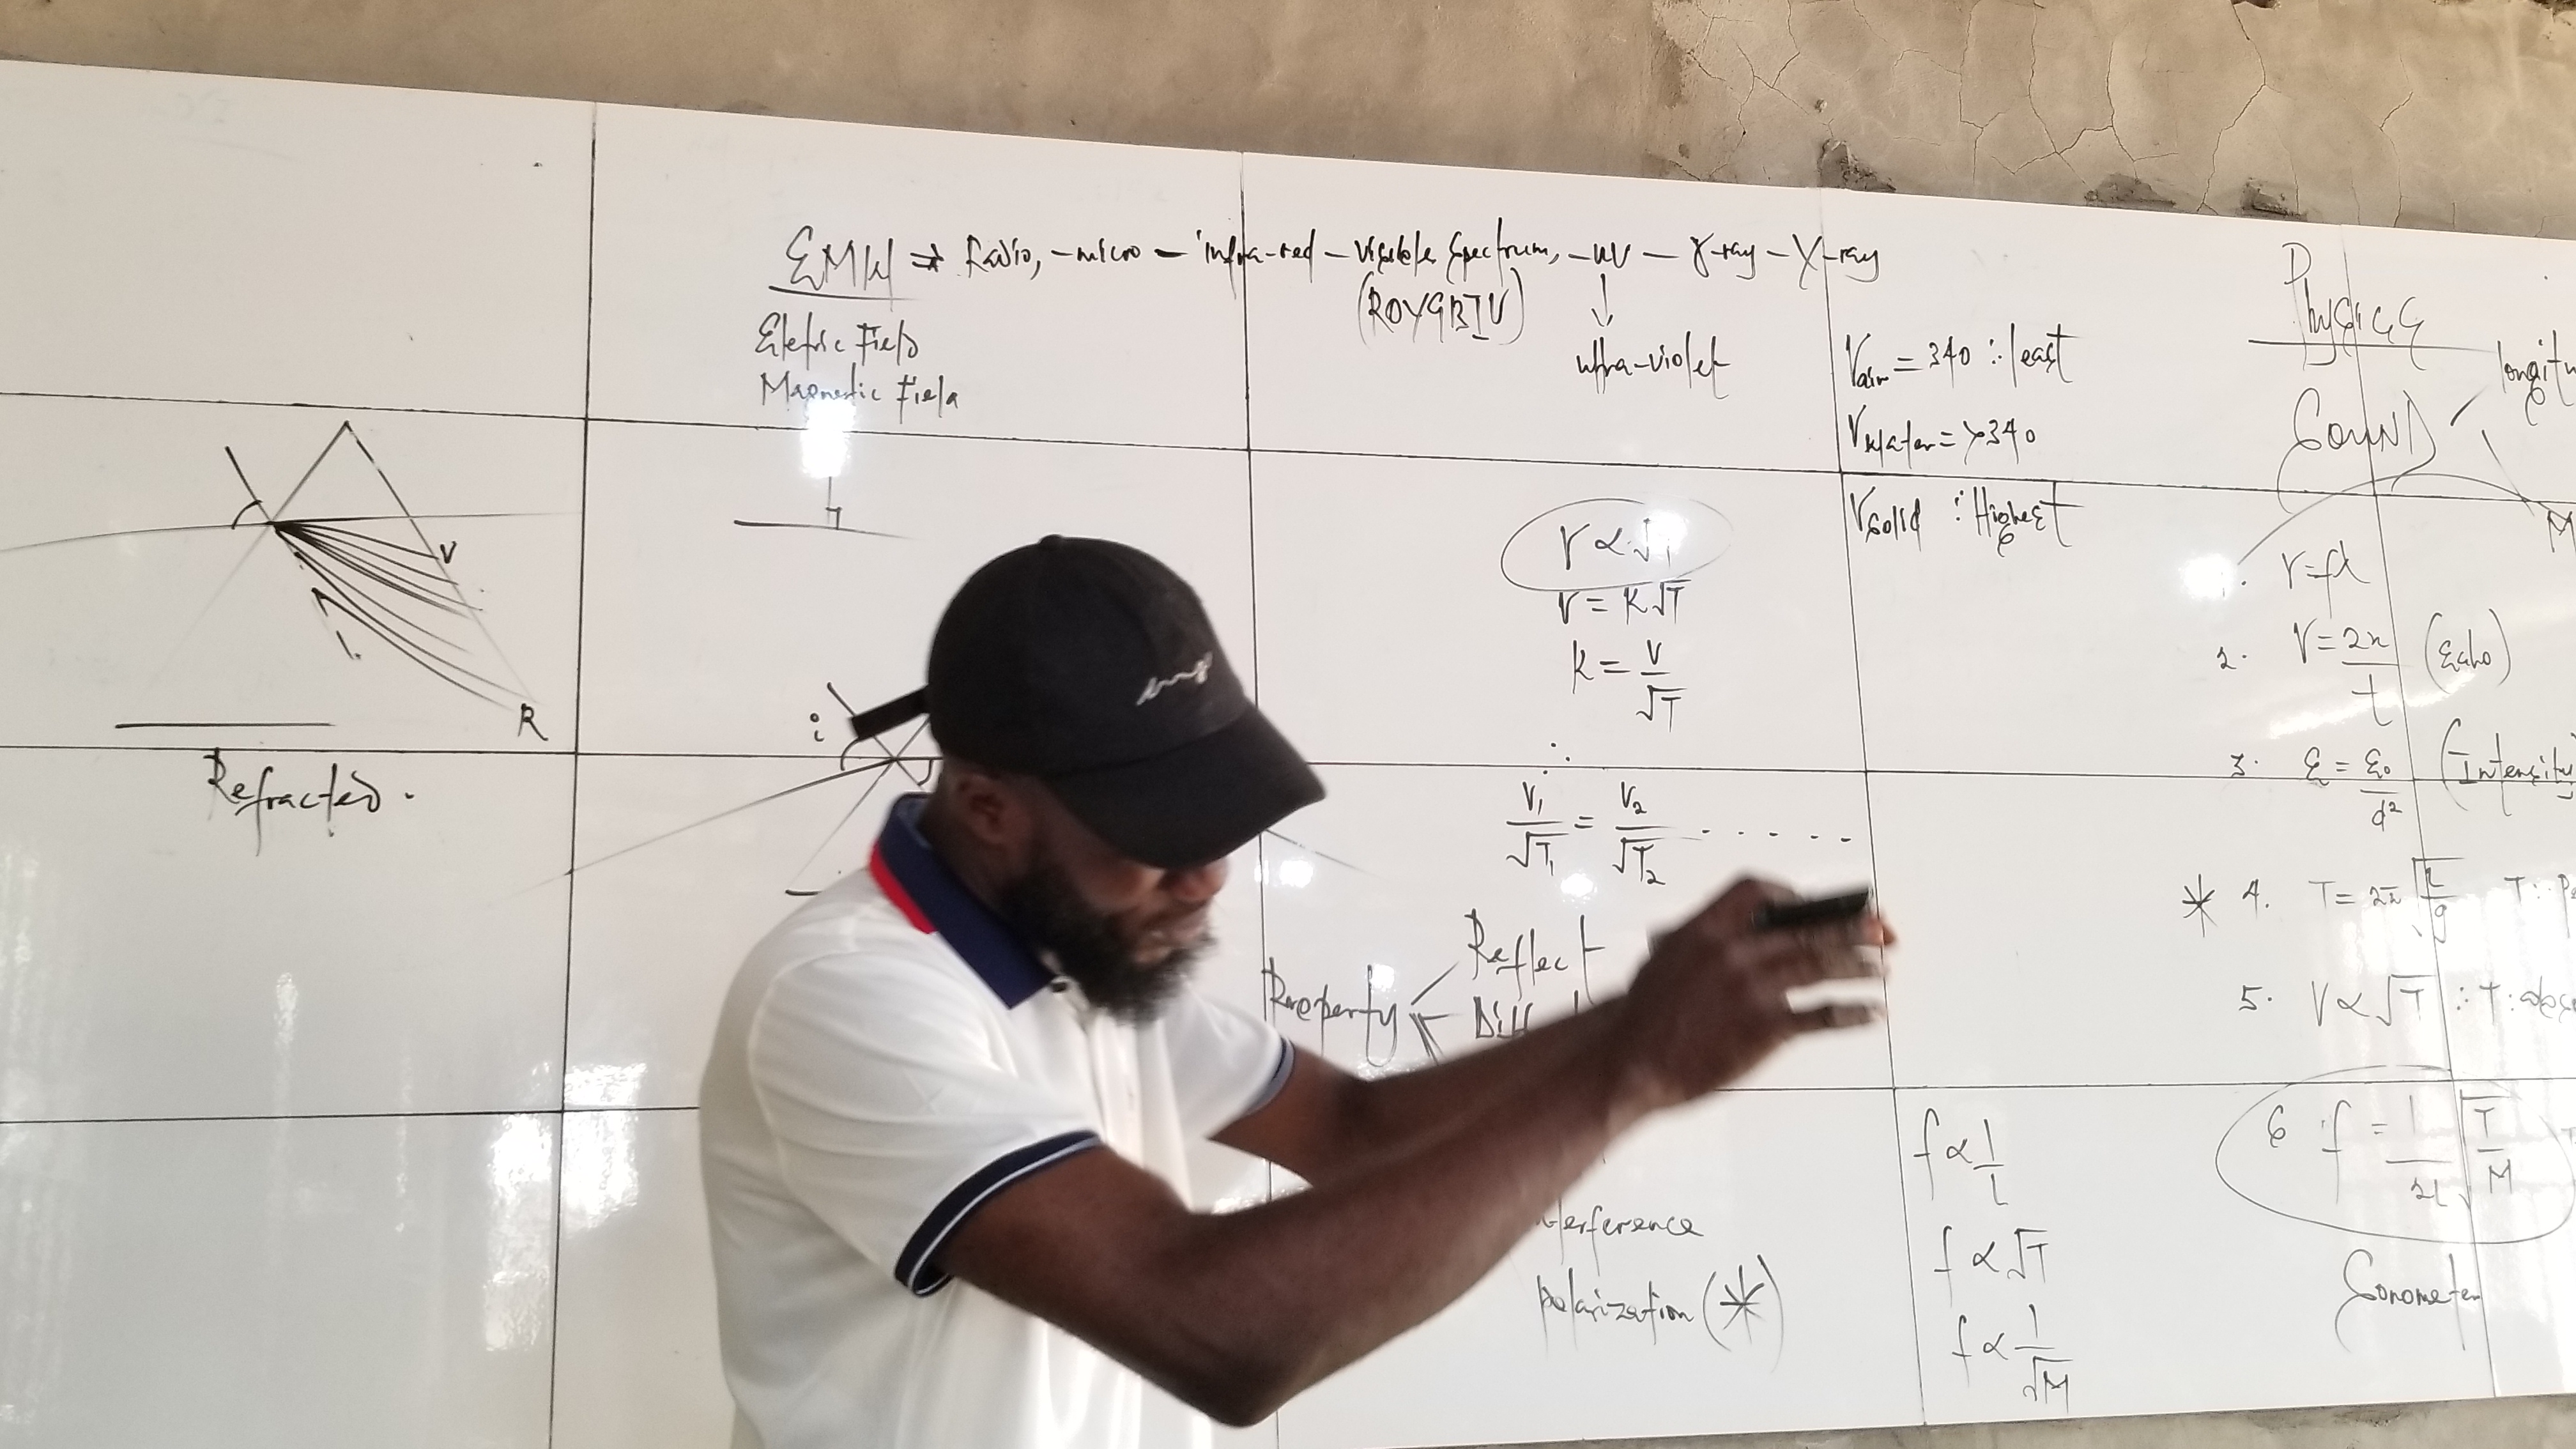 EMW ⇒ Radio, - micro - infra-red - visible spectrum, - UV - γ-ray - X-ray
(ROYGBIV)
↓
ultra-violet
Eletric Field
Magnetic Field
V
R
Refracted.
i
V ∝ √T
V = K√T
K = V/√T
∴
V₁/√T₁ = V₂/√T₂ . . . . .
Property
Reflect
polarization (*)
Vair = 340 : least
Vwater = >340
Vsolid : Highest
f ∝ 1/l
f ∝ √T
f ∝ 1/√M
Physics
SOUND
1. V=fλ
2. V=2x/t (Echo)
3. E = E₀/d² (Intensity
* 4. T = 2π√(l/g) T:
5. V ∝ √T : T:
6 f = 1/2l √(T/M)
Sonometer